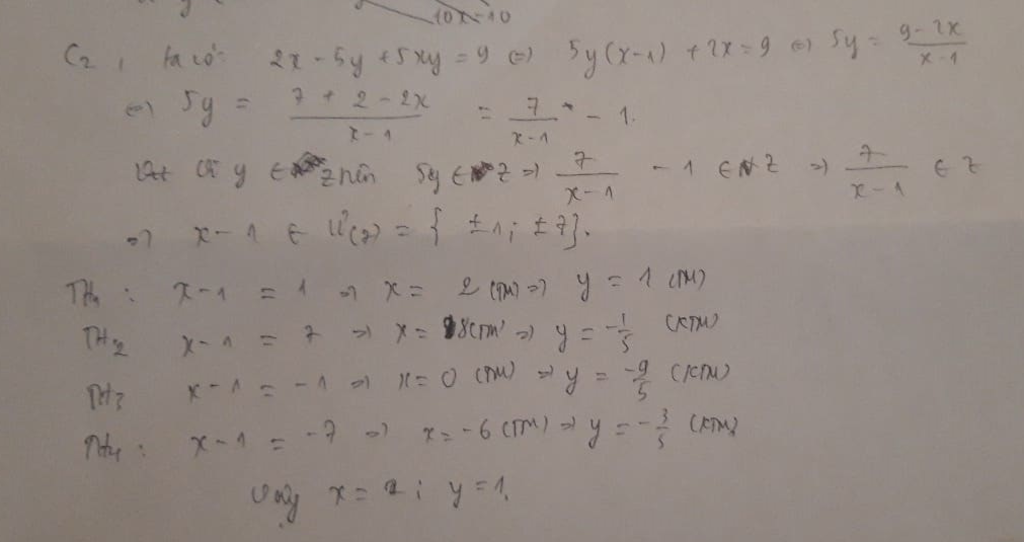 10x-10
C2, ta có: 2x - 5y + 5xy = 9 <=> 5y(x-1) + 2x = 9 <=> 5y = (9-2x)/(x-1)
<=> 5y = (7 + 2 - 2x)/(x-1) = 7/(x-1) - 1.
Vì y ∈ Z nên 5y ∈ Z => 7/(x-1) - 1 ∈ Z => 7/(x-1) ∈ Z
=> x - 1 ∈ Ư(7) = { ±1; ±7}.
TH1 : x-1 = 1 => x = 2 (TM) => y = 1 (TM)
TH2 x-1 = 7 => x = 8 (TM) => y = -1/5 (KTM)
TH3 x-1 = -1 => x = 0 (TM) => y = -9/5 (KTM)
TH4 : x-1 = -7 => x = -6 (TM) => y = -3/5 (KTM)
Vậy x = 2 ; y = 1.